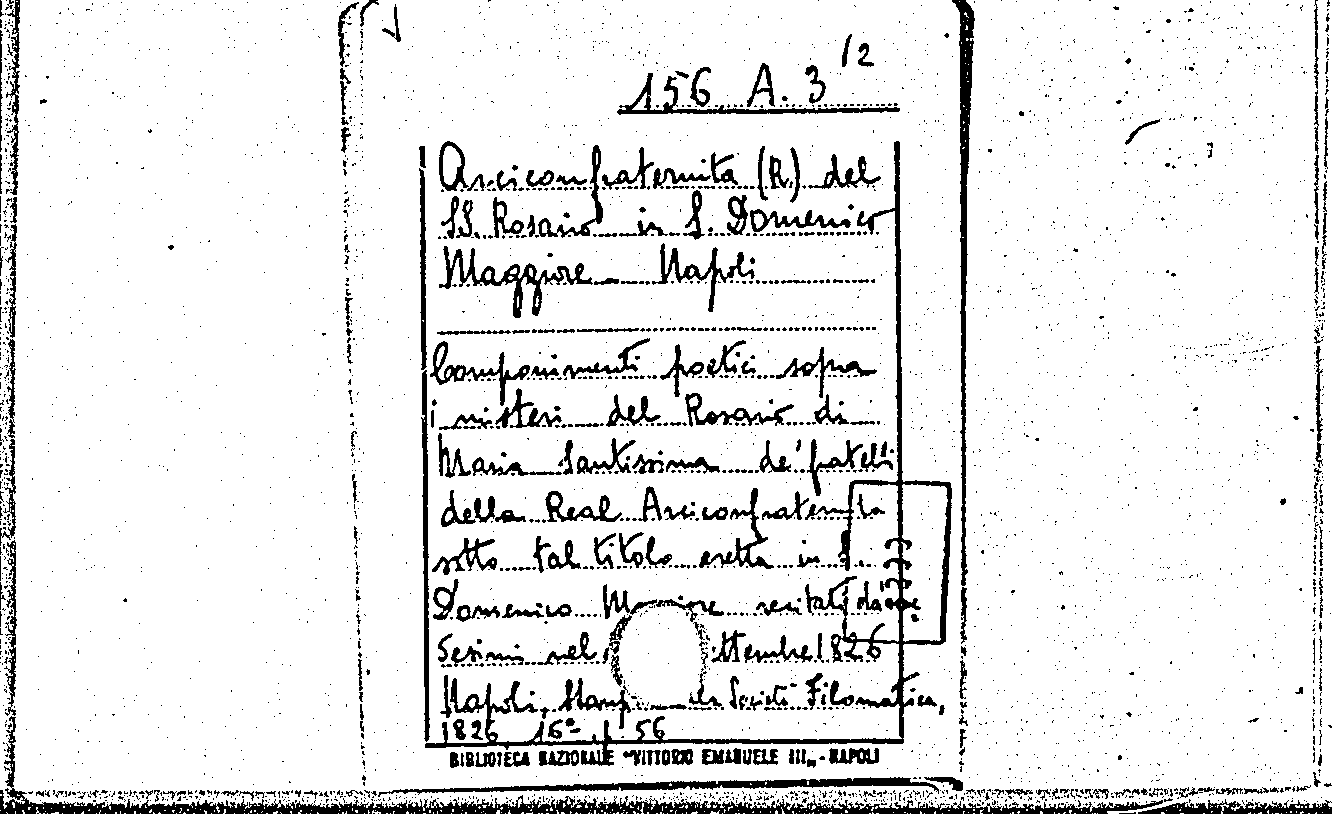 156 A. 3 /2
Arciconfraternita (R) del
SS. Rosario in S. Domenico
Maggiore Napoli
Componimenti poetici sopra
i misteri del Rosario di
Maria Santissima de' fratelli
della Real Arciconfraternita
sotto tal titolo eretta in S.
Domenico recitati da'
nel 1826
Napoli, Società Filomatica,
1826 16° 56
BIBLIOTECA NAZIONALE "VITTORIO EMANUELE III„ - NAPOLI